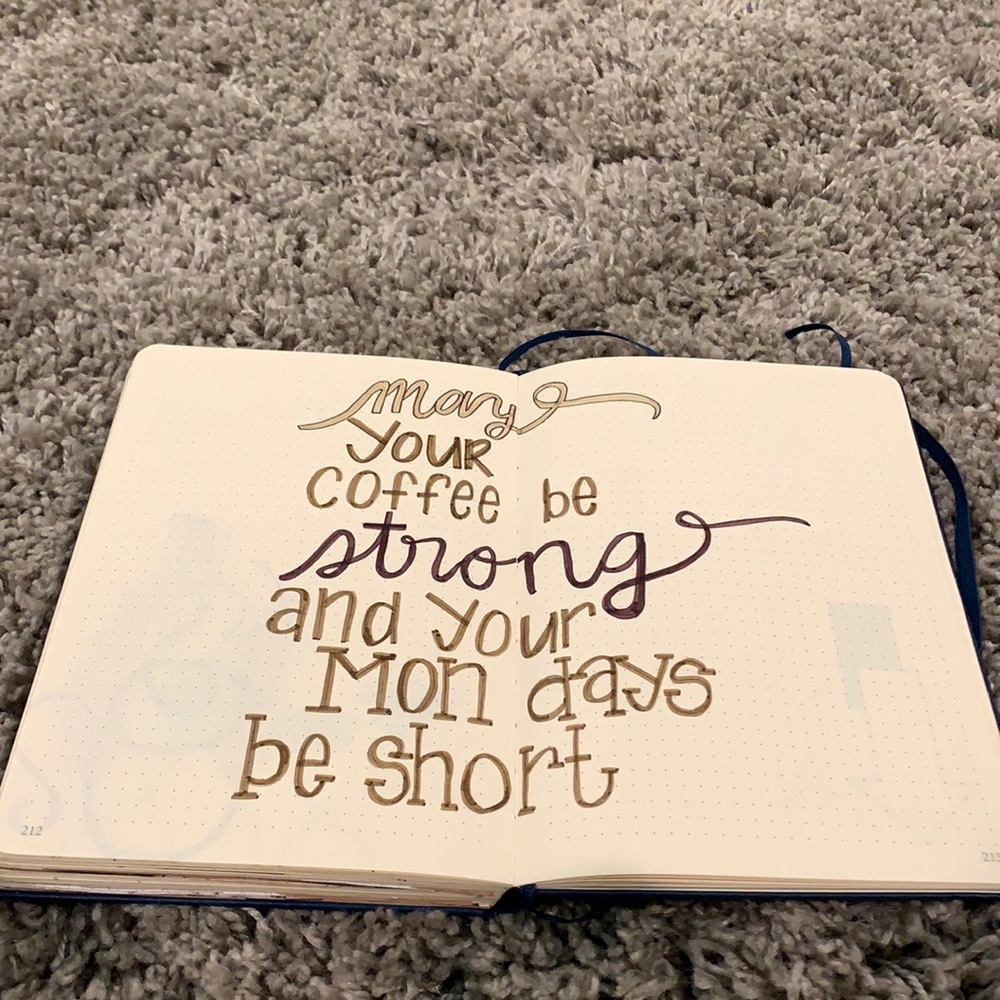 may
your
coffee be
strong
and your
Mon days
be short
212